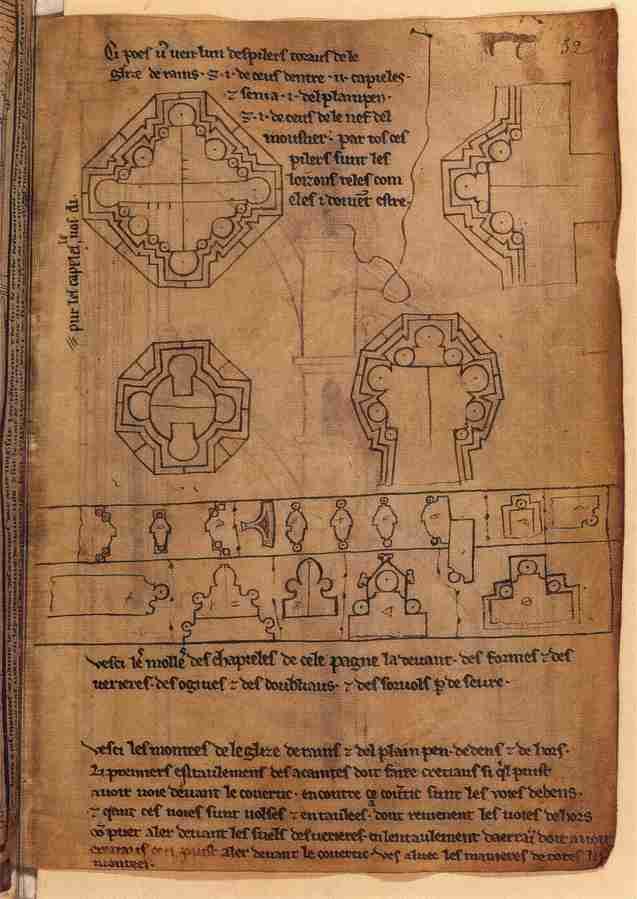 32
Ci poes ũ veir lun des pilers toraus de le
glize de rains · ⁊ · i · de ceus dentre · ii · capieles ·
⁊ sen i a · i · del plain pen ·
⁊ · i · de ceus de le nef del
moustier · par tos ces
pilers sunt les
loizons teles com
eles i doivẽt estre ·
pur tel capetel
vesci les mollẽ des chapieles de cele pagne la devant · des formes ⁊ des
verieres · des ogives ⁊ des doubliaus · ⁊ des sorvols p deseure ·
vesci les montees de le glize de rains ⁊ del plain pen · dedens ⁊ de hors ·
Li premiers estaulemens des acaintes doit faire cretiaus si ql puist
avoir voie devant le covertic · encontre ce covertic sunt les voies dedens ·
⁊ qant ces voies sunt volses ⁊ entaulees · dont revienent les voies dehors
cõ puet aler devant les suels des verieres · en lentaulement daerraĩ doit avoir
cretiaus puist aler devant le covertic · ves aluec les manieres de totes les
montees ·